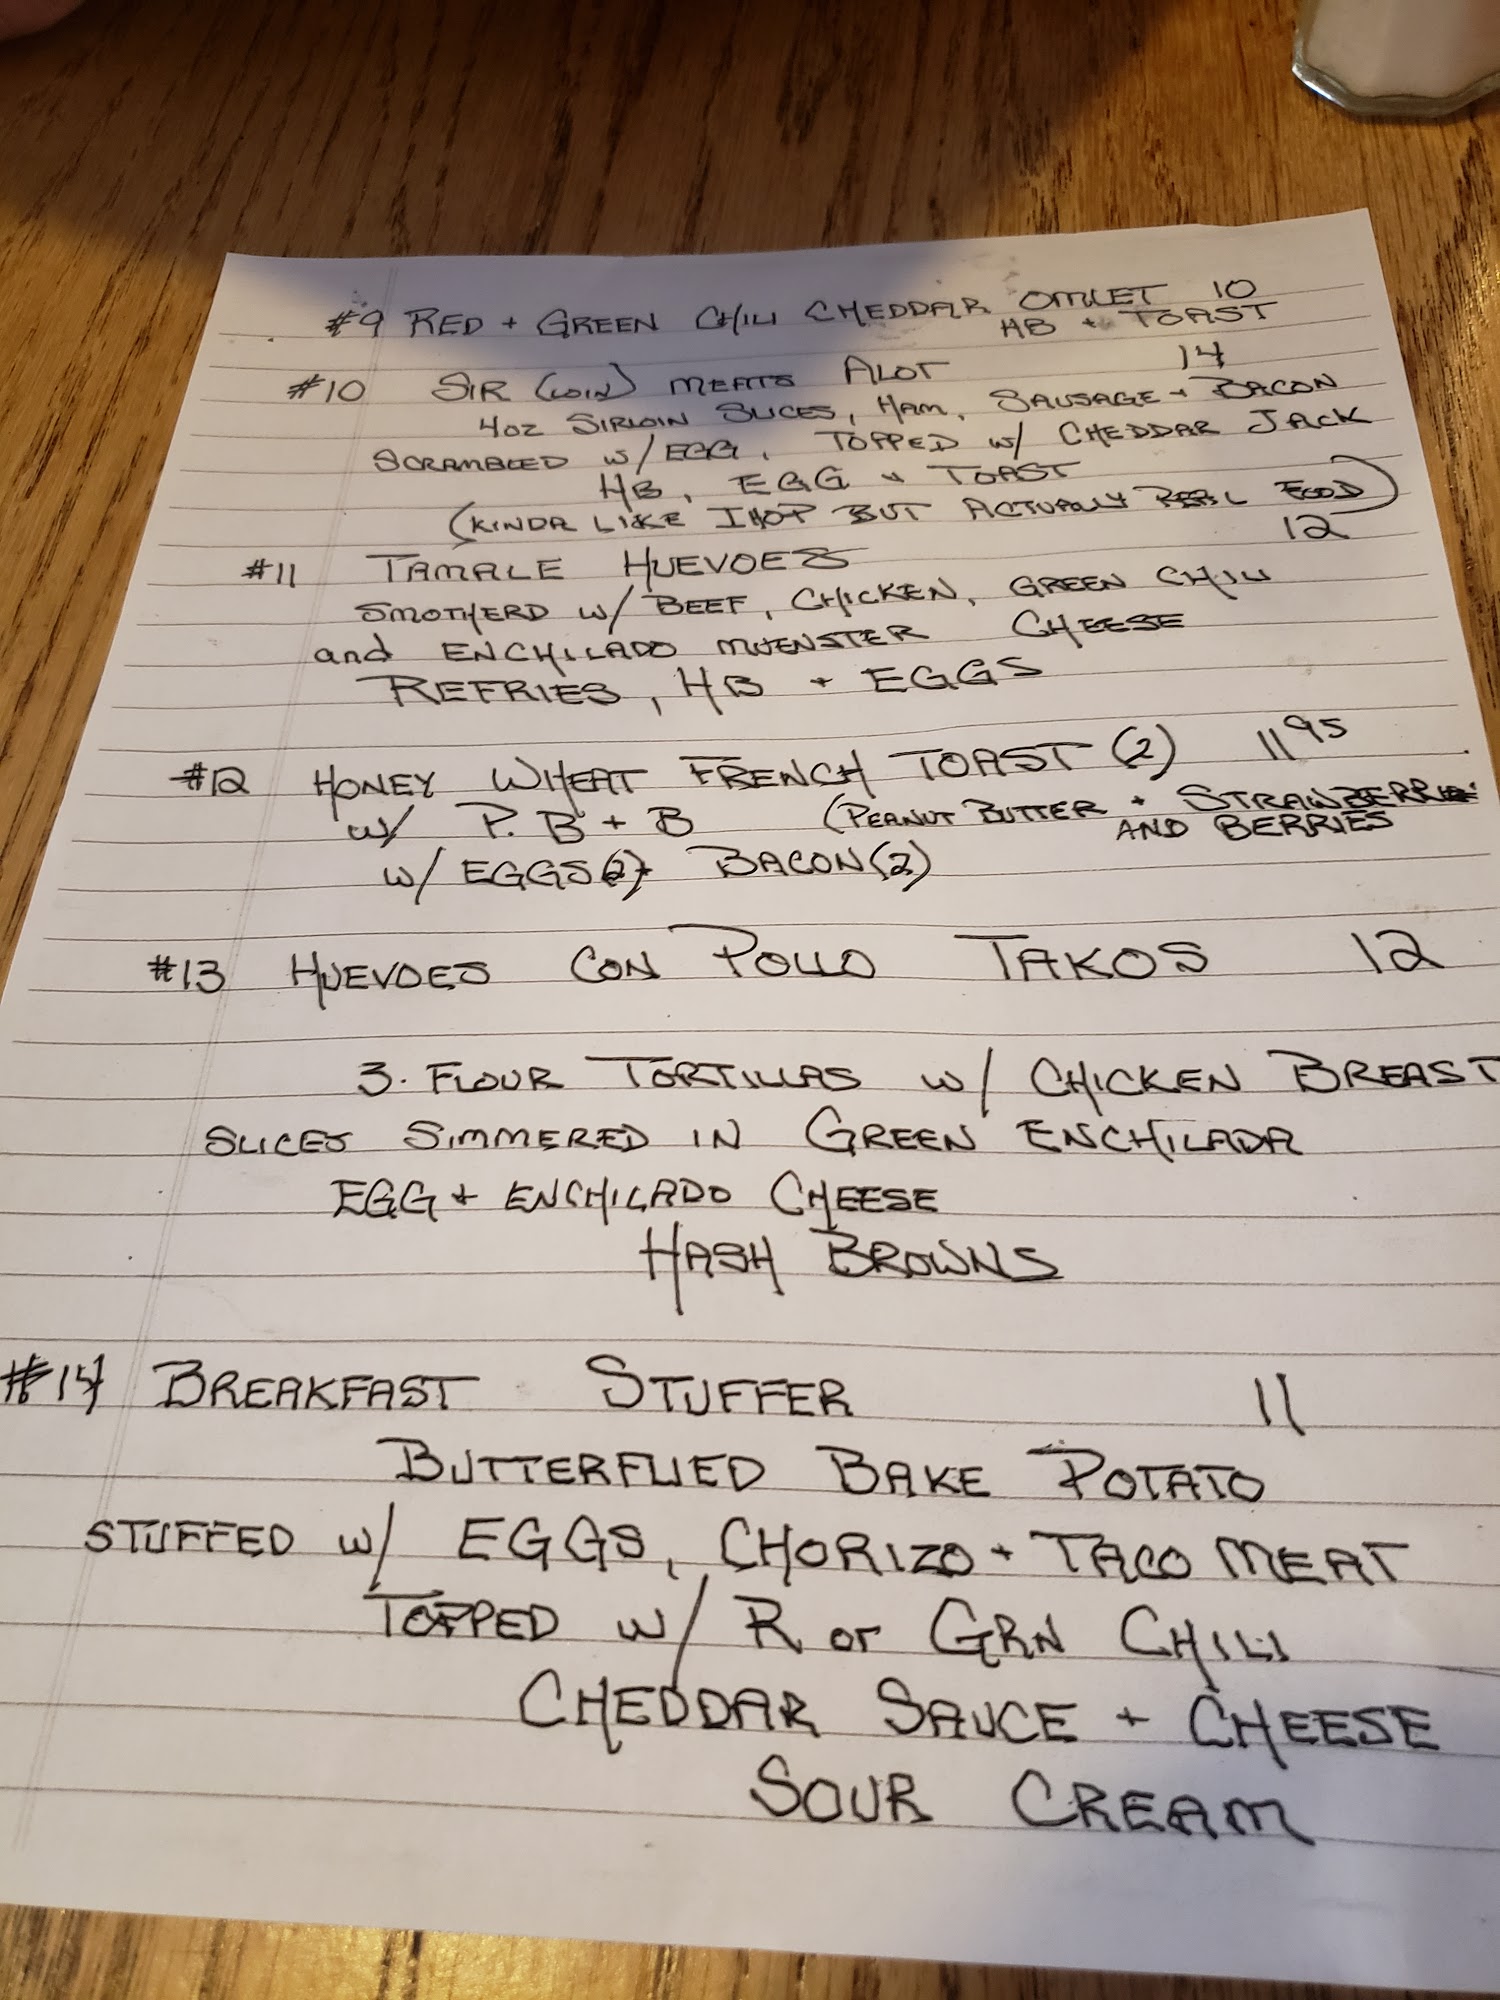 #9 RED + GREEN CHILI CHEDDAR OMLET 10
HB + TOAST
#10 SIR (LOIN) MEATS ALOT 14
4oz SIRLOIN SLICES, HAM, SAUSAGE + BACON
SCRAMBLED w/ EGG, TOPPED w/ CHEDDAR JACK
HB, EGG + TOAST
(KINDA LIKE IHOP BUT ACTUALLY REAL FOOD)
#11 TAMALE HUEVOES 12
SMOTHERD w/ BEEF, CHICKEN, GREEN CHILI
and ENCHILADO MUENSTER CHEESE
REFRIES, HB + EGGS
#12 HONEY WHEAT FRENCH TOAST (2) 11 95
w/ P. B + B (PEANUT BUTTER + STRAWBERRIES
AND BERRIES
w/ EGGS (2) BACON (2)
#13 HUEVOES CON POLLO TAKOS 12
3. FLOUR TORTILLAS w/ CHICKEN BREAST
SLICES SIMMERED IN GREEN ENCHILADA
EGG + ENCHILADO CHEESE
HASH BROWNS
#14 BREAKFAST STUFFER 11
BUTTERFLIED BAKE POTATO
STUFFED w/ EGGS, CHORIZO + TACO MEAT
TOPPED w/ R or GRN CHILI
CHEDDAR SAUCE + CHEESE
SOUR CREAM